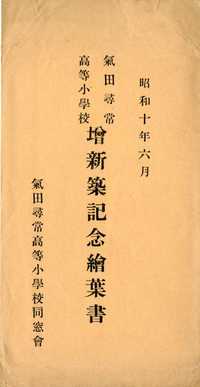 昭和十年六月
氣田尋常
高等小學校
增新築記念繪葉書
氣田尋常高等小學校同窓會